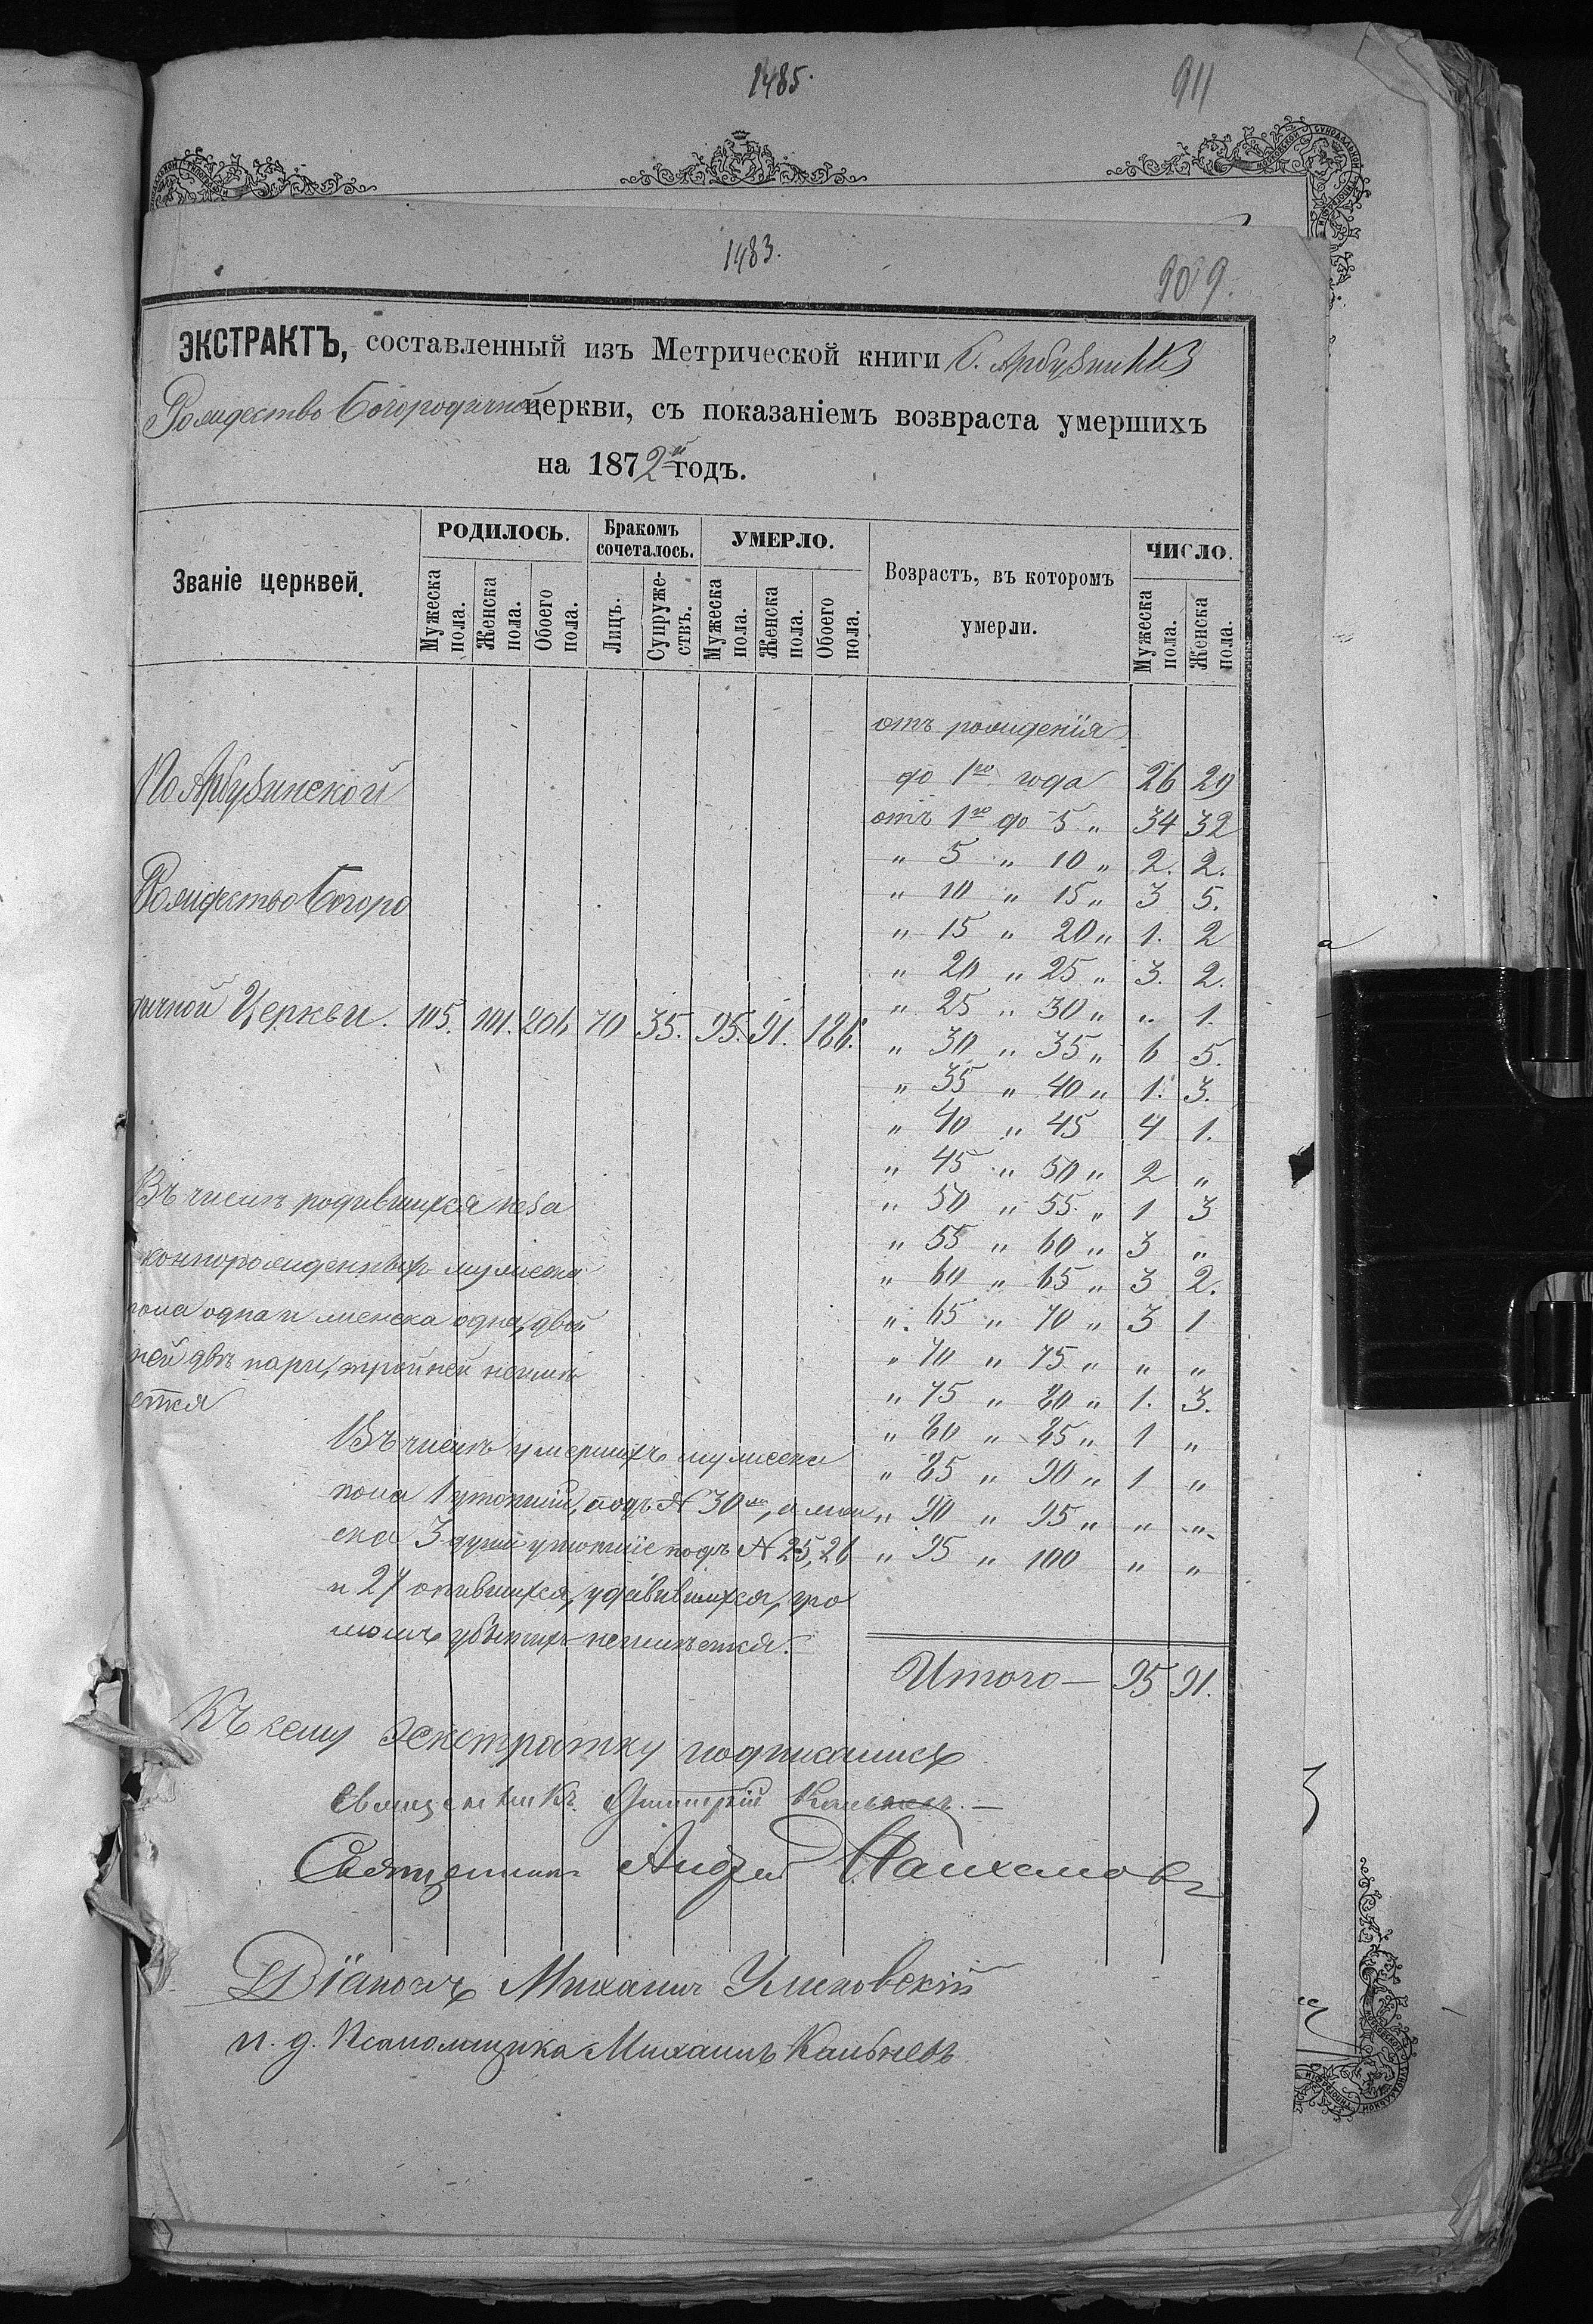 1485.
911
1483.
909.
ЭКСТРАКТЪ, составленный изъ Метрической книги С. Арбузинки
Рождество Богородичной церкви, съ показаніемъ возвраста умершихъ
на 1872й годъ.
Званіе церквей.
РОДИЛОСЬ.
Бракомъ сочеталось.
УМЕРЛО.
Возрастъ, въ которомъ умерли.
ЧИСЛО.
Мужеска пола.
Женска пола.
Обоего пола.
Лицъ.
Супружествъ.
Мужеска пола.
Женска пола.
Обоего пола.
Мужеска пола.
Женска пола.
отъ рожденія
до 1го года 26 29
отъ 1го до 5 „ 34 32
„ 5 „ 10 „ 2. 2.
„ 10 „ 15 „ 3 5.
„ 15 „ 20 „ 1. 2
„ 20 „ 25 „ 3. 2.
„ 25 „ 30 „ „ 1.
„ 30 „ 35 „ 6 5.
„ 35 „ 40 „ 1. 3.
„ 40 „ 45 4 1.
„ 45 „ 50 „ 2 „
„ 50 „ 55 „ 1 3
„ 55 „ 60 „ 3 „
„ 60 „ 65 „ 3 2.
„ 65 „ 70 „ 3 1
„ 70 „ 75 „ „ „
„ 75 „ 80 „ 1. 3.
„ 80 „ 85 „ 1 „
„ 85 „ 90 „ 1 „
„ 90 „ 95 „ „ „
„ 95 „ 100 „ „
Итого — 95 91.
По Арбузинской
Рождество Богоро
дичной Церкви. 105. 101. 206 70 35. 95. 91. 186.
Въ числѣ родившихся неза
коннорожденныхъ мужеска
пола одна и женска одна, двой
ней двѣ пары, тройней неимѣ
ется
Въ числѣ умершихъ мужеска
пола 1 утопшій, подъ № 30мъ, а жен
ска 3 души утопшіе подъ № 25, 26
и 27 опившихся, удавившихся, гро
момъ убитыхъ неимѣется.
Къ сему Экстракту подписались
Священникъ Димитрій
Священникъ Андрей
Діаконъ Михаилъ Улиновскій
и. д. Псаломщика Михаилъ